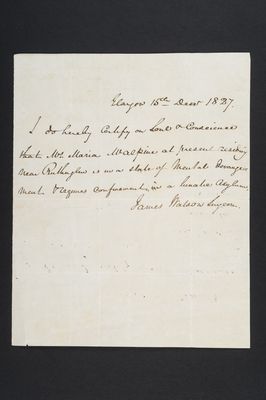 Glasgow 15th Decr 1827.
I do hereby Certify on Soul & Conscience
that Mrs Maria Macalpine at present residing
near Rutherglen is in a state of Mental Derange
ment & requires confinement in a Lunatic Asylum
James Watson Surgeon.